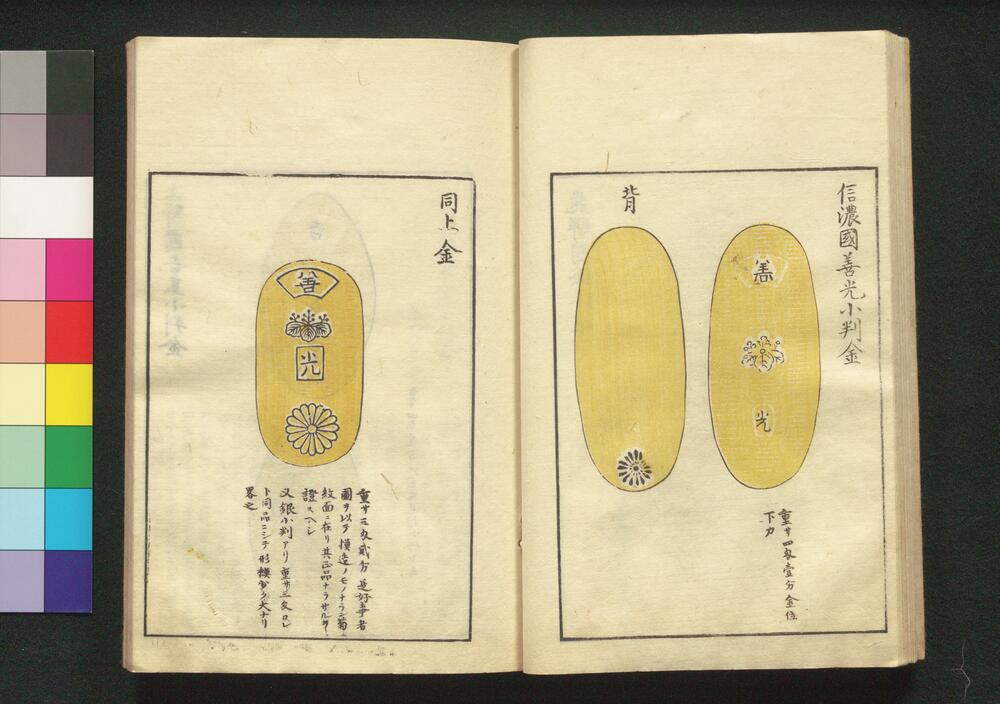 信濃國善光小判金
善
光
重サ四匁壹分金位
下カ
背
同上金
善
光
重サ三匁貳分是好事者
圖ヲ以テ模造ノモノナラン菊ノ
紋面ニ在リ其正品ナラサル
證スヘシ
又銀小判アリ重サ三匁
ト同品ニシテ形模少ク大ナリ
畧之